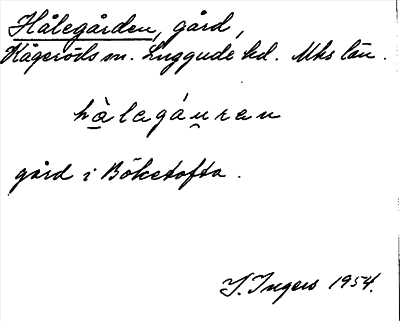 Hålegården, gård,
Kågeröds sn. Luggude hd. Mhs län.
hàlagáu̯ren
gård i Böketofta.
I. Ingers 1954.